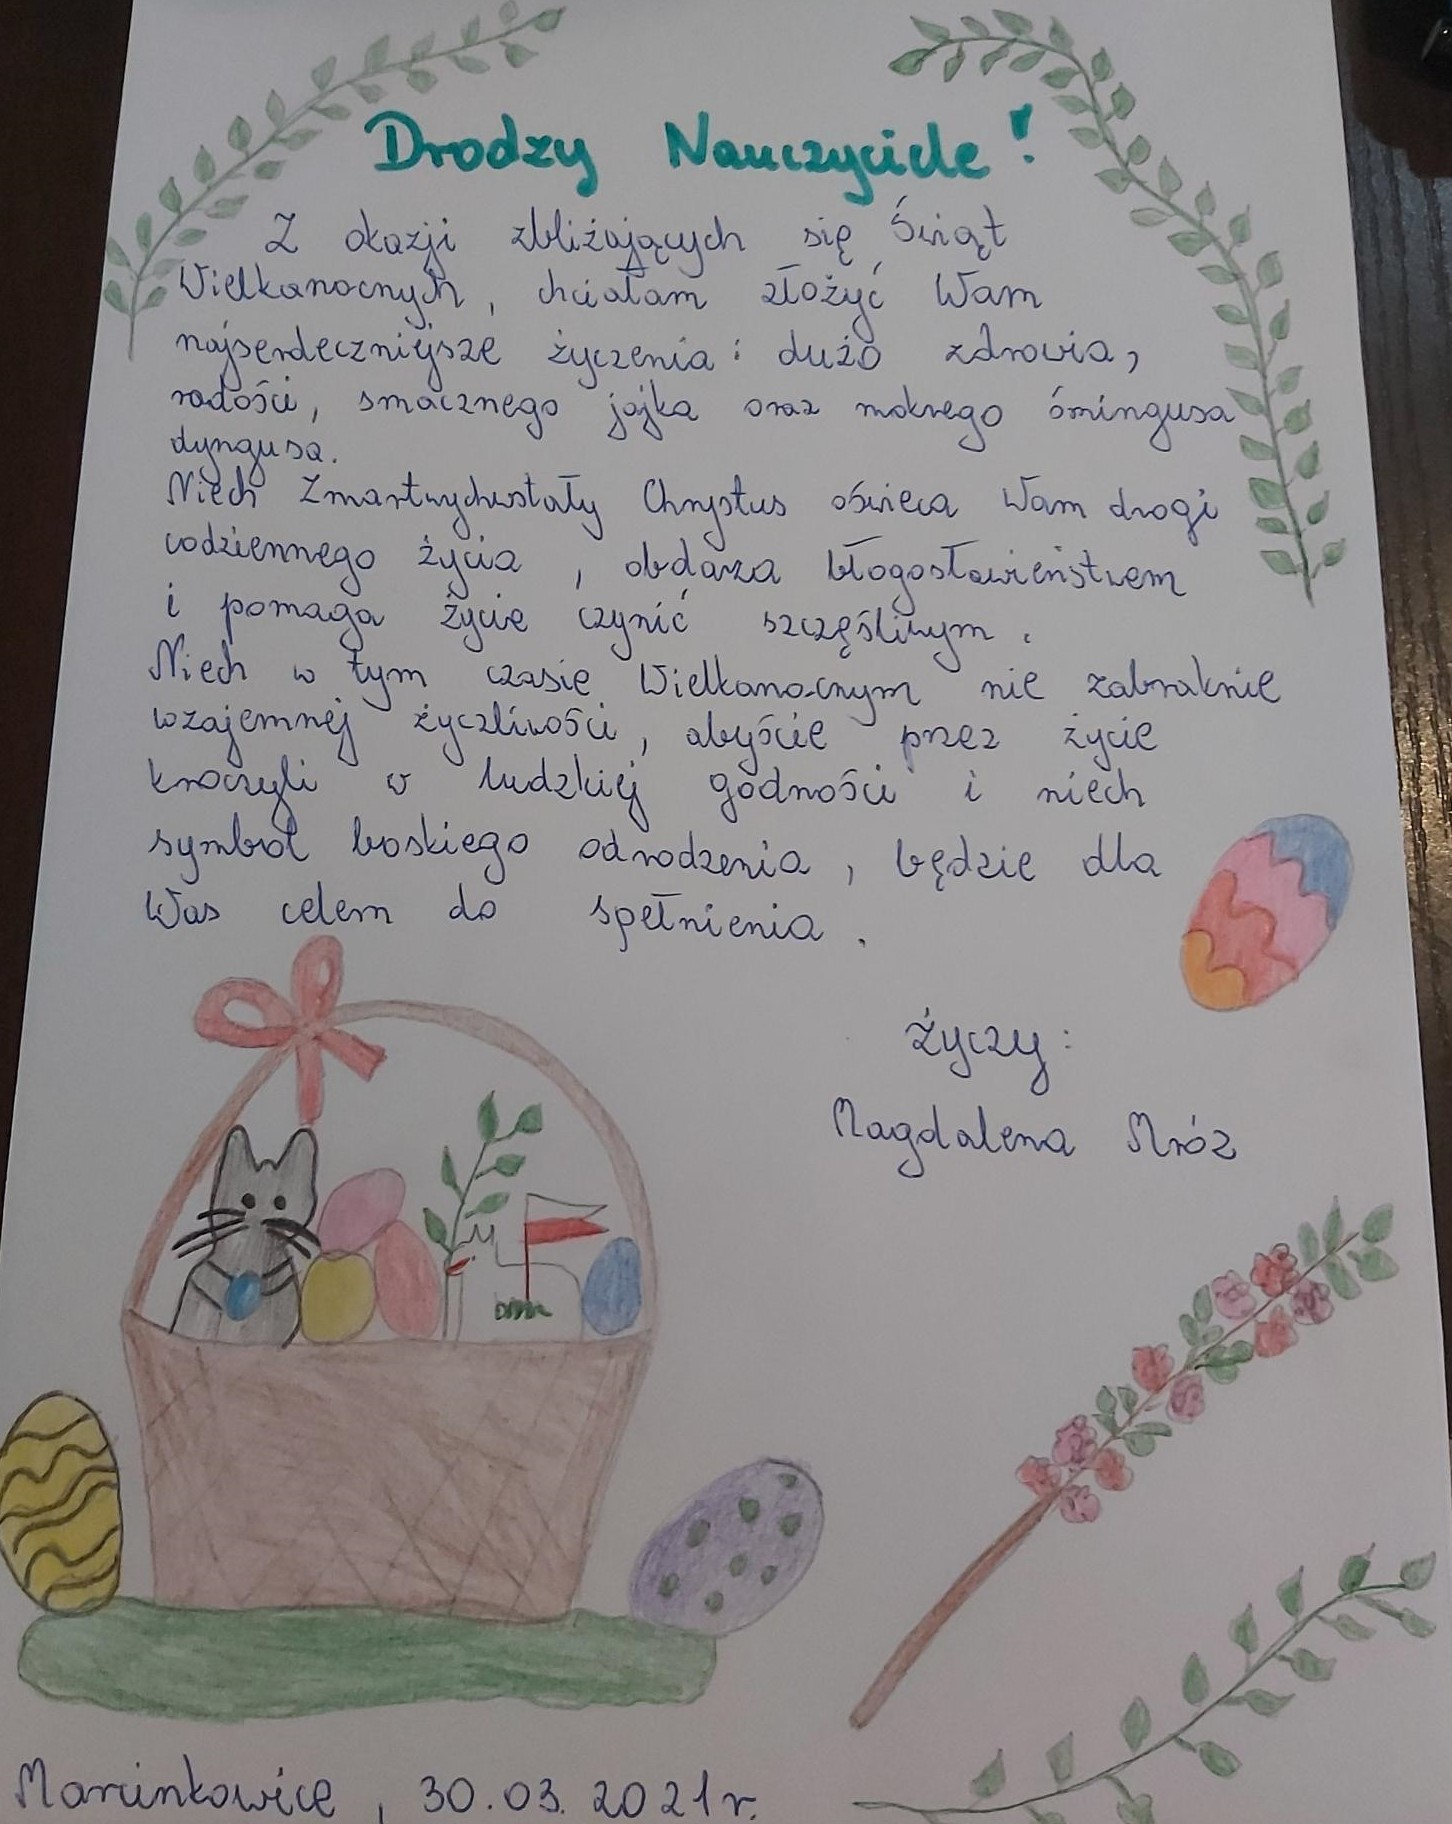 Drodzy Nauczyciele!
Z okazji zbliżających się Świąt
Wielkanocnych, chciałam złożyć Wam
najserdeczniejsze życzenia: dużo zdrowia,
radości, smacznego jajka oraz mokrego śmingusa
dyngusa.
Niech Zmartwychwstały Chrystus oświeca Wam drogi
codziennego życia, obdarza błogosławieństwem
i pomaga życie czynić szczęśliwym.
Niech w tym czasie Wielkanocnym nie zabraknie
wzajemnej życzliwości, abyście przez życie
kroczyli w ludzkiej godności i niech
symbol boskiego odrodzenia, będzie dla
Was celem do spełnienia.
życzy:
Magdalena Mróz
Marcinkowice, 30.03.2021r.